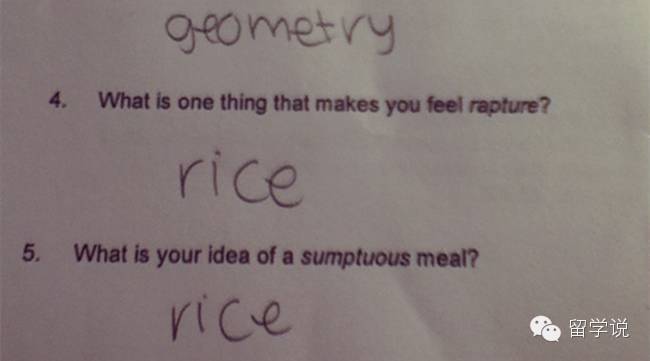 geometry
4. What is one thing that makes you feel rapture?
rice
5. What is your idea of a sumptuous meal?
rice
留学说